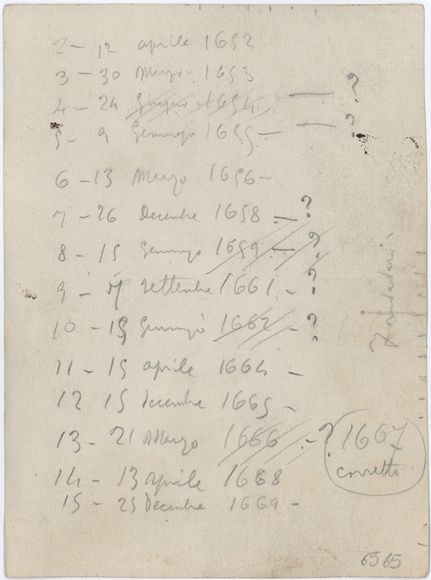 2 - 12 aprile 1652
3 - 30 Marzo - 1653
4 - 24 Giugno - 1654 - ?
5 - 9 Gennajo 1655 - ?
6 - 13 Marzo 1656 -
7 - 26 Decembre 1658 - ?
8 - 15 Gennajo 1659 - ?
9 - settembre 1661 - ?
10 - 15 Gennajo 1662 - ?
11 - 15 aprile 1664 -
12 15 decembre 1665 -
13 - 21 Marzo 1666 - ? 1667
corretto
14 - 13 aprile 1668
15 - 25 Decembre 1669 -
6565